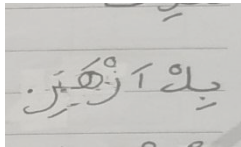 بِكْ اَزْهَيَر.